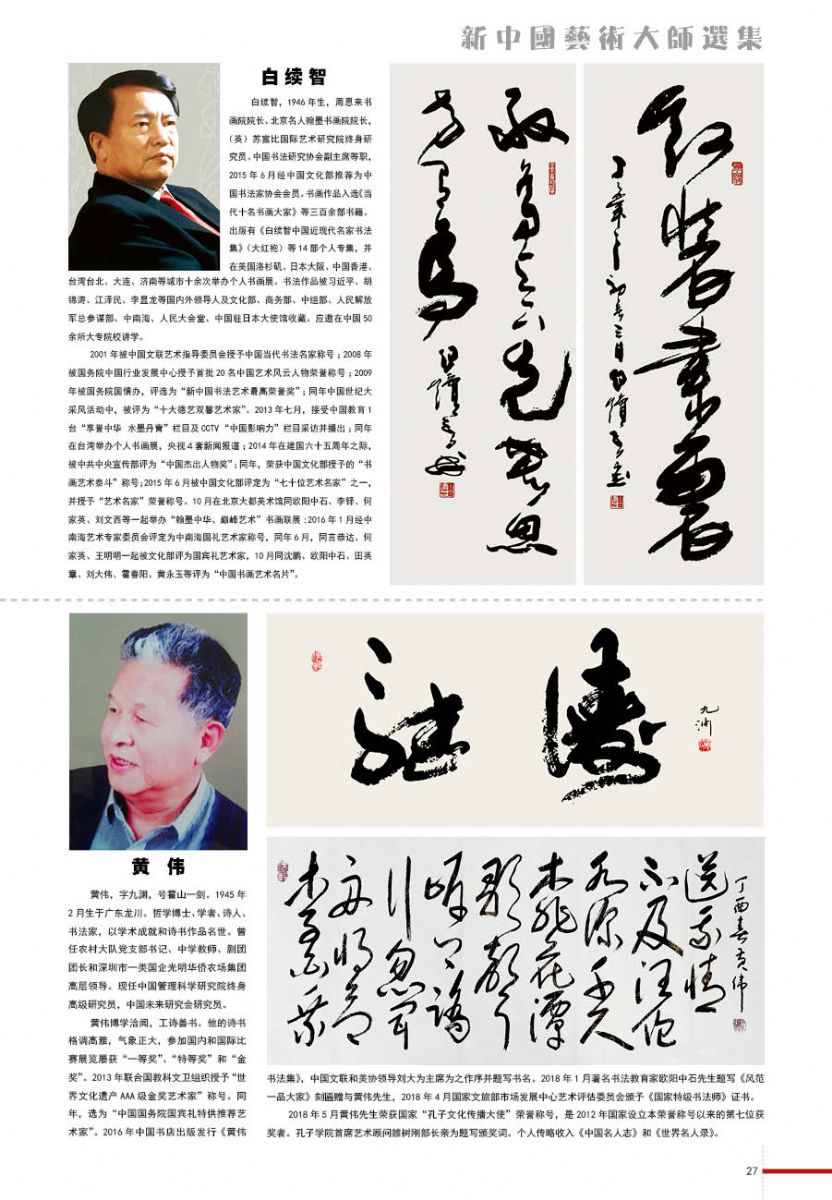 新中國藝術大師選集
白续智
白续智，1946年生，周恩来书
画院院长、北京名人翰墨书画院院长，
（英）苏富比国际艺术研究院终身研
究员。中国书法研究协会副主席等职，
2015年6月经中国文化部推荐为中
国书法家协会会员。书画作品入选《当
代十名书画大家》等三百余部书籍。
出版有《白续智中国近现代名家书法
集》（大红袍）等14部个人专集，并
在美国洛杉矶、日本大阪、中国香港、
台湾台北、大连、济南等城市十余次举办个人书画展。书法作品被习近平、胡
锦涛、江泽民、李显龙等国内外领导人及文化部、商务部、中组部、人民解放
军总参谋部、中南海、人民大会堂、中国驻日本大使馆收藏、应邀在中国50
余所大专院校讲学。
2001年被中国文联艺术指导委员会授予中国当代书法名家称号；2008年
被国务院中国行业发展中心授予首批20名中国艺术风云人物荣誉称号；2009
年被国务院国情办，评选为“新中国书法艺术最高荣誉奖”；同年中国世纪大
采风活动中，被评为“十大德艺双馨艺术家”。2013年七月，接受中国教育1
台“享誉中华 水墨丹青”栏目及CCTV“中国影响力”栏目采访并播出；同年
在台湾举办个人书画展，央视4套新闻报道；2014年在建国六十五周年之际，
被中共中央宣传部评为“中国杰出人物奖”；同年，荣获中国文化部授予的“书
画艺术泰斗”称号；2015年6月被中国文化部评定为“七十位艺术名家”之一，
并授予“艺术名家”荣誉称号。10月在北京大都美术馆同欧阳中石、李铎、何
家英、刘文西等一起举办“翰墨中华、巅峰艺术”书画联展；2016年1月经中
南海艺术专家委员会评定为中南海国礼艺术家称号，同年6月，同言恭达、何
家英、王明明一起被文化部评为国宾礼艺术家，10月同沈鹏、欧阳中石、田英
章、刘大伟、霍春阳、黄永玉等评为“中国书画艺术名片”。
九渊
丁酉春黄伟
送我情
不及汪伦
水深千尺
桃花潭
歌声
岸上踏
行忽闻
舟将欲
李白乘
黄 伟
黄伟，字九渊，号霍山一剑。1945年
2月生于广东龙川。哲学博士、学者、诗人、
书法家，以学术成就和诗书作品名世。曾
任农村大队党支部书记、中学教师、剧团
团长和深圳市一类国企光明华侨农场集团
高层领导。现任中国管理科学研究院终身
高级研究员，中国未来研究会研究员。
黄伟博学洽闻，工诗善书。他的诗书
格调高雅，气象正大，参加国内和国际比
赛展览屡获“一等奖”、“特等奖”和“金
奖”。2013年联合国教科文卫组织授予“世
界文化遗产AAA级金奖艺术家”称号。同
年，选为“中国国务院国宾礼特供推荐艺
术家”。2016年中国书店出版发行《黄伟
书法集》，中国文联和美协领导刘大为主席为之作序并题写书名。2018年1月著名书法教育家欧阳中石先生题写《风范
一品大家》刻匾赠与黄伟先生，2018年4月国家文旅部市场发展中心艺术评估委员会颁予《国家特级书法师》证书。
2018年5月黄伟先生荣获国家“孔子文化传播大使”荣誉称号，是2012年国家设立本荣誉称号以来的第七位获
奖者。孔子学院首席艺术顾问雒树刚部长亲为题写颁奖词。个人传略收入《中国名人志》和《世界名人录》。
27